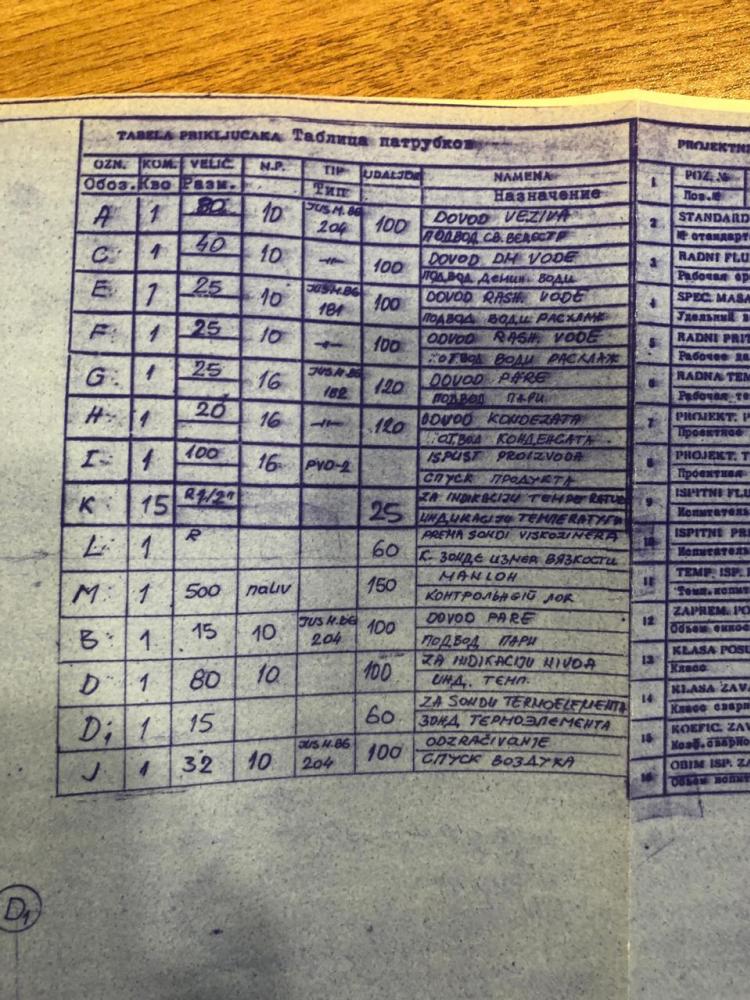 TABELA PRIKLJUČAKA Таблица патрубков
OZN. KOM. VELIČ. N.P. TIP UDALJE NAMENA
Обоз. Кво Разм. ТИП Назначение
A 1 80 10 JUS M.B6 204 100 DOVOD VEZIVA
ПОДВОД СВ.
C 1 40 10 —"— 100 DOVOD DM VODE
ПОДВОД ДЕМИН. ВОДЫ
E 1 25 10 JUS M.B6 181 100 DOVOD RASH. VODE
ПОДВОД ВОДЫ
F 1 25 10 —"— 100 ODVOD RASH. VODE
ОТВОД ВОДЫ
G 1 25 16 JUS M.B6 182 120 DOVOD PARE
ПОДВОД ПАРИ
H 1 20 16 —"— 120 ODVOD KONDEZATA
ОТВОД КОНДЕНСАТА
I 1 100 16 PVO-2 ISPUST PROIZVODA
СПУСК ПРОДУКТА
K 15 R1/2" 25 ZA INDIKACIJU TEMPERATURE
L 1 R 60 PREMA SONDI VISKOZIMERA
К. ЗОНДЕ ИЗМЕР ВЯЗКОСТИ
M 1 500 naliv 150 MANLOH
ЛОК
B 1 15 10 JUS M.B6 204 100 DOVOD PARE
ПОДВОД ПАРИ
D 1 80 10 100 ZA INDIKACIJU NIVOA
ИНД. ТЕМП.
D1 1 15 60 ZA SONDU TERMOELEMENTA
ЗОНД ТЕРМОЭЛЕМЕНТА
J 1 32 10 JUS M.B6 204 100 ODZRAČIVANJE
СПУСК ВОЗДУХА
PROJEKTNI
1 POZ. №
Поз. №
2 STANDARD
№ стандарт
3 RADNI FLU
Рабочая ср
4 SPEC. MASA
Удельный в
5 RADNI PRIT
Рабочее да
6 RADNA TEM
Рабочая те
7 PROJEKT. P
Проектное
8 PROJEKT. T
Проектная
9 ISPITNI FLU
Испытател
10 ISPITNI PR
Испытател
11 TEMP. ISP. F
Темп. испы
12 ZAPREM. PO
Объем емкос
13 KLASA POSU
Класс
14 KLASA ZAV.
Класс сварн
15 KOEFIC. ZAV
Коэф. сварно
16 OBIM ISP. ZA
Объем испыт
D1